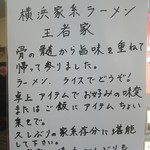 横浜家系ラーメン
王者家
骨の髄から旨味を重ねて
帰って参りました。
ラーメン、ライスでどうぞ!
卓上アイテムでお好みの味変
またはご飯にアイテムちょい
乗せで。
久しぶりの家系存分に堪能
して下さい。